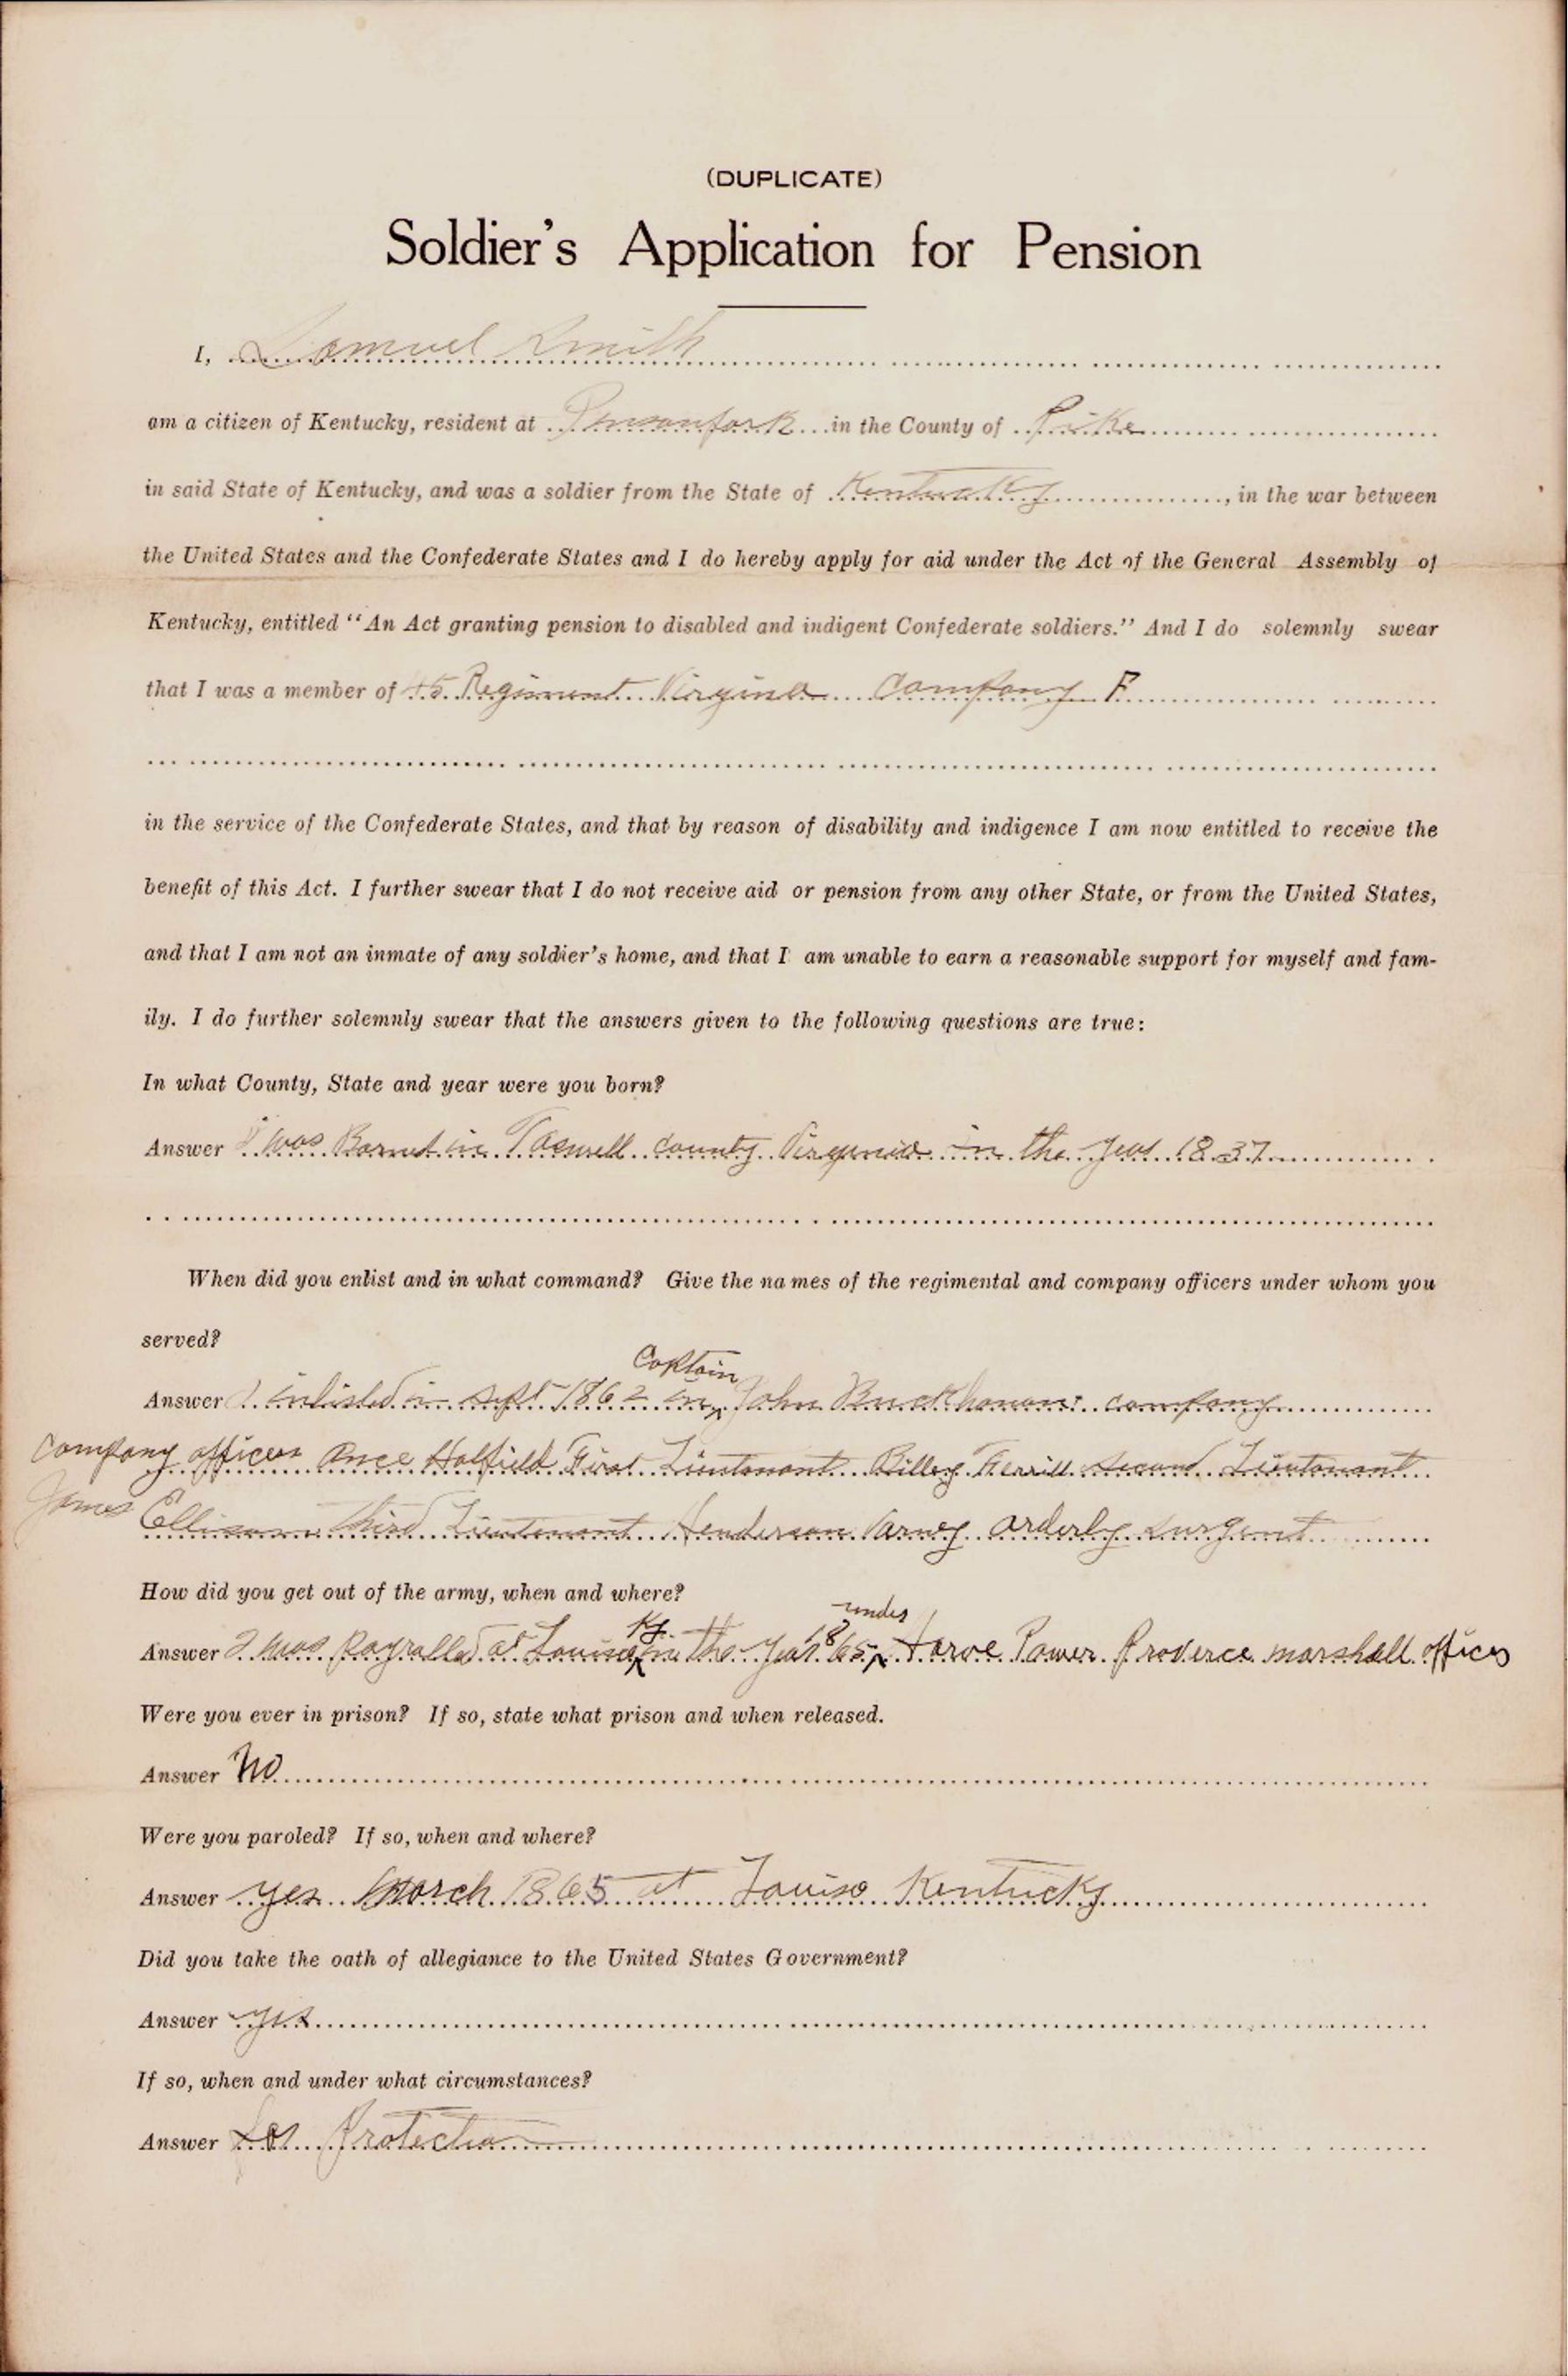 (DUPLICATE)
Soldier's Application for Pension
I, Samuel Smith
am a citizen of Kentucky, resident at in the County of Pike
in said State of Kentucky, and was a soldier from the State of Kentucky, in the war between
the United States and the Confederate States and I do hereby apply for aid under the Act of the General Assembly of
Kentucky, entitled "An Act granting pension to disabled and indigent Confederate soldiers." And I do solemnly swear
that I was a member of 45 Regiment Virginia Company F
in the service of the Confederate States, and that by reason of disability and indigence I am now entitled to receive the
benefit of this Act. I further swear that I do not receive aid or pension from any other State, or from the United States,
and that I am not an inmate of any soldier's home, and that I am unable to earn a reasonable support for myself and fam-
ily. I do further solemnly swear that the answers given to the following questions are true:
In what County, State and year were you born?
Answer I was in county in the year 1837
When did you enlist and in what command? Give the names of the regimental and company officers under whom you
served?
Captain
Answer I in Sept 1862 in John company
company officers Hatfield First Lieutenant Billey Second Lieutenant
James Ellison third Lieutenant Henderson Varney orderly surgent
How did you get out of the army, when and where?
Ky 18 under
Answer I was at Louisa in the year 65 Power marshall offices
Were you ever in prison? If so, state what prison and when released.
Answer No
Were you paroled? If so, when and where?
Answer yes March 1865 at Louisa Kentucky
Did you take the oath of allegiance to the United States Government?
Answer yes
If so, when and under what circumstances?
Answer for Protection